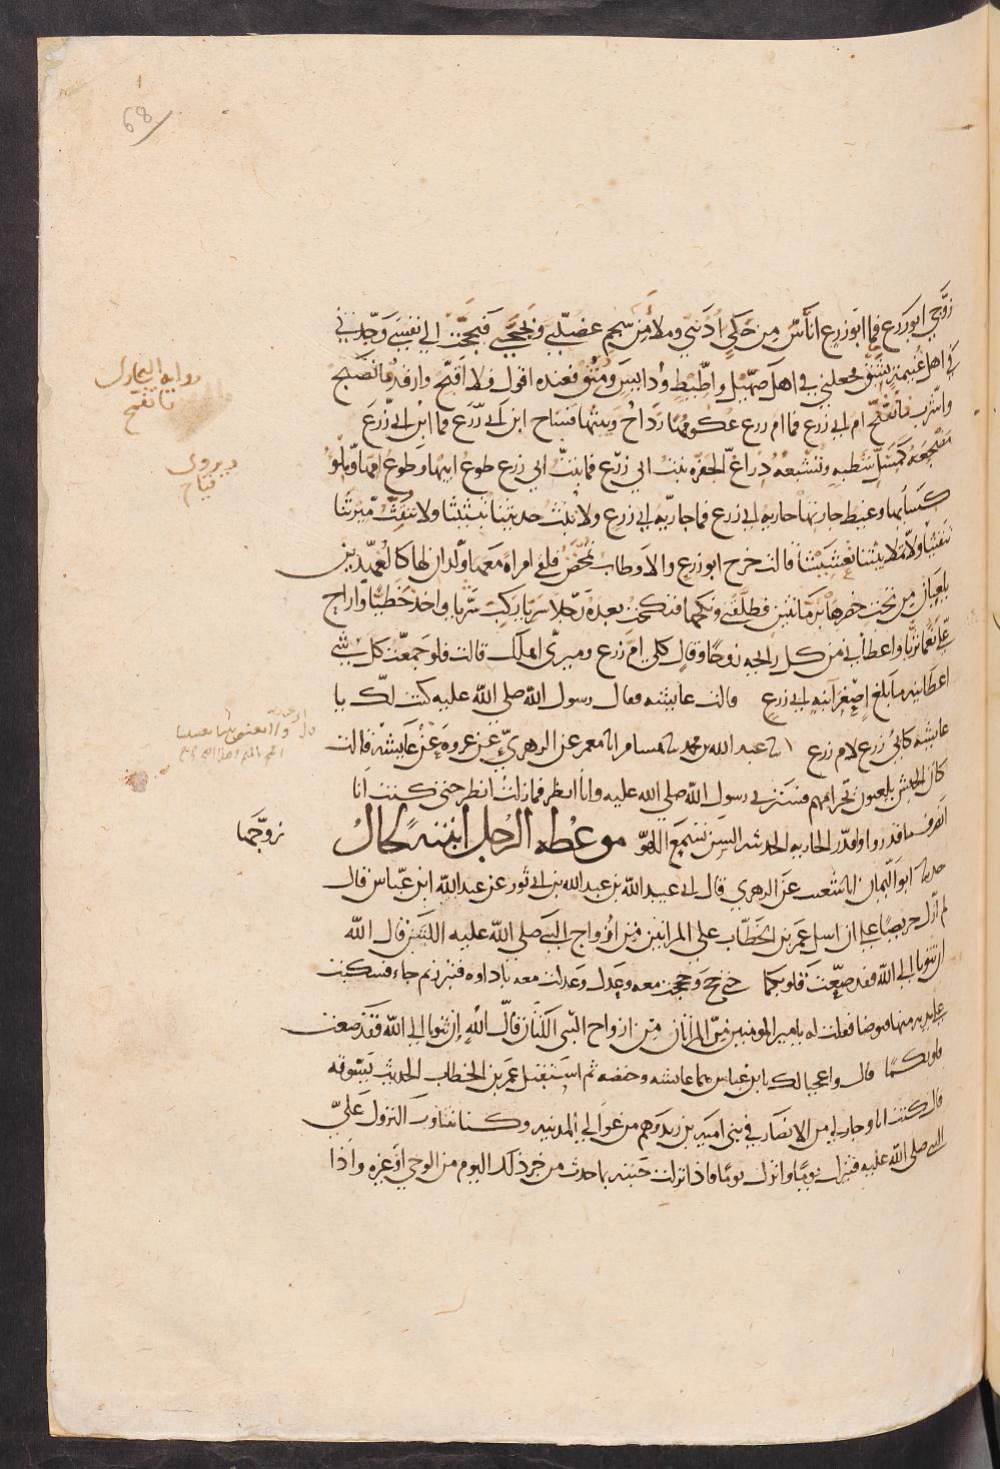 68
زوجي ابو زرع فما ابو زرع اناس من حلي اذني وملا من شحم عضدي وبجحني فبجحت الي نفسي وجدني
في اهل غنيمة بشق فجعلني في اهل صهيل واطيط ودايس ومنق فعنده اقول فلا اقبح وارقد فاتصبح
واشرب فاتقنح ام ابي زرع فما ام زرع عكومها رداح وبيتها فساح ابن ابي زرع فما ابن ابي زرع
مضجعه كمسل شطبه وتشبعه ذراع الجفره بنت ابي زرع فما بنت ابي زرع طوع ابيها وطوع امها وملو
كسائها وغيظ جارتها جاريه ابي زرع فما جاريه ابي زرع ولا تبث حديثنا تبثيثا ولا تنقث ميرتنا
تنقيثا ولا تملا بيتنا تعشيشا قالت خرج ابو زرع والاوطاب تمخض فلقي امراة معها ولدان لها كالفهدين
يلعبان من تحت خصرها برمانتين فطلقني ونكحها فنكحت بعده رجلا سريا ركب شريا واخذ خطيا واراح
علي نعما ثريا واعطاني من كل رايحه زوجا وقال كلي ام زرع وميري اهلك قالت فلو جمعت كل شي
اعطانيه ما بلغ اصغر انيه ابي زرع قالت عايشه فقال رسول الله صلي الله عليه كنت لك يا
عايشه كابي زرع لام زرع عبد الله بن محمد هشام انا معمر عن الزهري عن عروه عن عايشه قالت
كان الحبش يلعبون بحرابهم فسترني رسول الله صلي الله عليه وانا انظر فما زلت انظر حتي كنت انا
انصرف فاقدروا قدر الجاريه الحديثه السن تسمع اللهو موعظه الرجل ابنته لحال
زوجها
حدثنا ابو اليمان انا شعيب عن الزهري قال ابي عبيد الله بن عبد الله بن ابي ثور عن عبد الله ابن عباس قال
لم ازل حريصا علي ان اسل عمر بن الخطاب علي المراتين من ازواج النبي صلي الله عليه اللتين قال الله
ان تتوبا الي الله فقد صغت قلوبكما حتي حج وحججت معه وعدل وعدلت معه باداوه فتبرز ثم جاء فسكبت
علي يديه منها فتوضا فقلت له يا امير المومنين من المراتان من ازواج النبي اللتان قال الله ان تتوبا الي الله فقد صغت
قلوبكما قال واعجبا لك يا ابن عباس هما عايشه وحفصه ثم استقبل عمر بن الخطاب الحديث يسوقه
قال كنت انا وجار لي من الانصار في بني اميه بن زيد وهم من عوالي المدينه وكنا نتناوب النزول علي
النبي صلي الله عليه فينزل يوما وانزل يوما فاذا نزلت جئته بما حدث من خبر ذلك اليوم من الوحي او غيره واذا
روايه البخاري
فاتقمح
ويروي
فياح